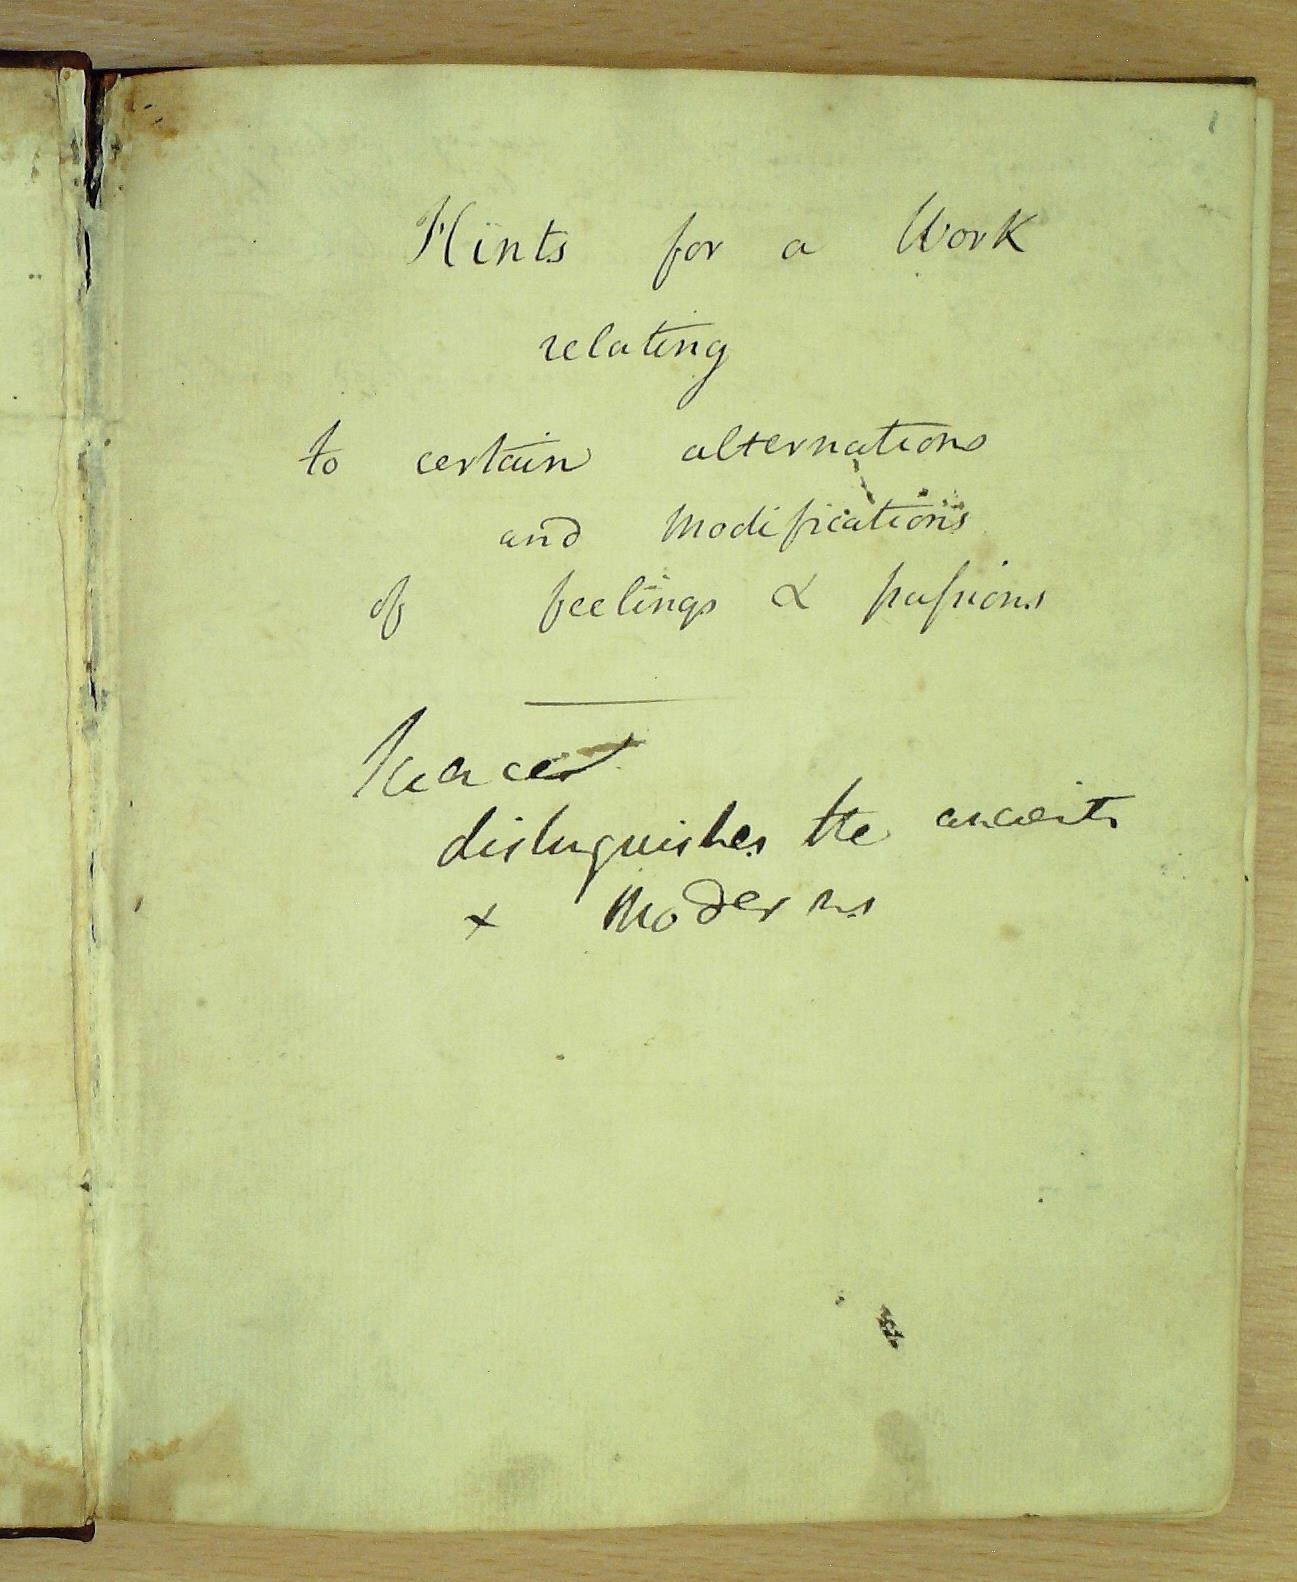 1
Hints for a Work
relating
to certain alternations
and Modifications
of feelings & paſsions
distinguishes the ancients
+ Moderns